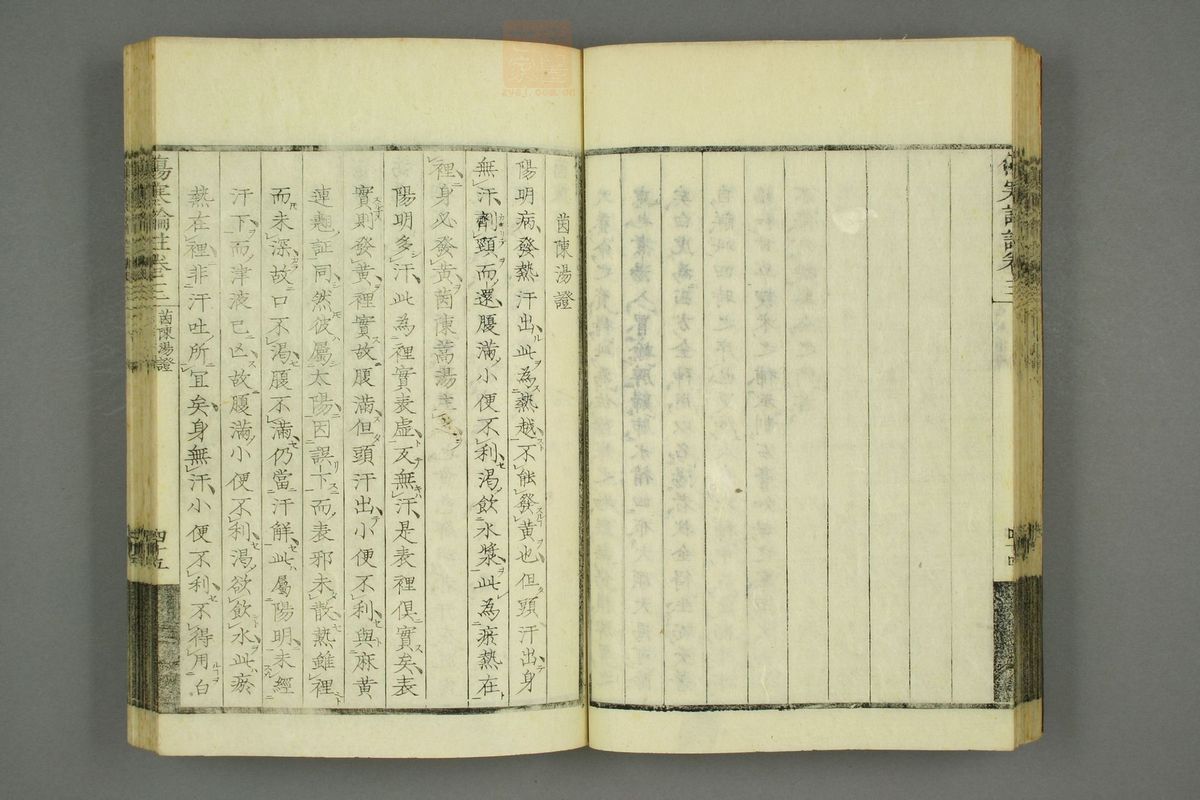 茵陳湯證
陽明病發熱汗出此為熱越不能發黃也但頭汗出身
無汗劑頸而還腹滿小便不利渴飲水漿此為瘀熱在
裡身必發黃茵陳蒿湯主之
陽明多汗此為裡實表虛反無汗是表裡俱實矣表
實則發黃裡實故腹滿但頭汗出小便不利與麻黃
連翹証同然彼屬太陽因誤下而表邪未散熱雖裡
而未深故口不渴腹不滿仍當汗解此屬陽明未經
汗下而津液已亡故腹滿小便不利渴欲飲水此瘀
熱在裡非汗吐所宜矣身無汗小便不利不得用白
傷寒論註卷三
茵陳湯證
四十五